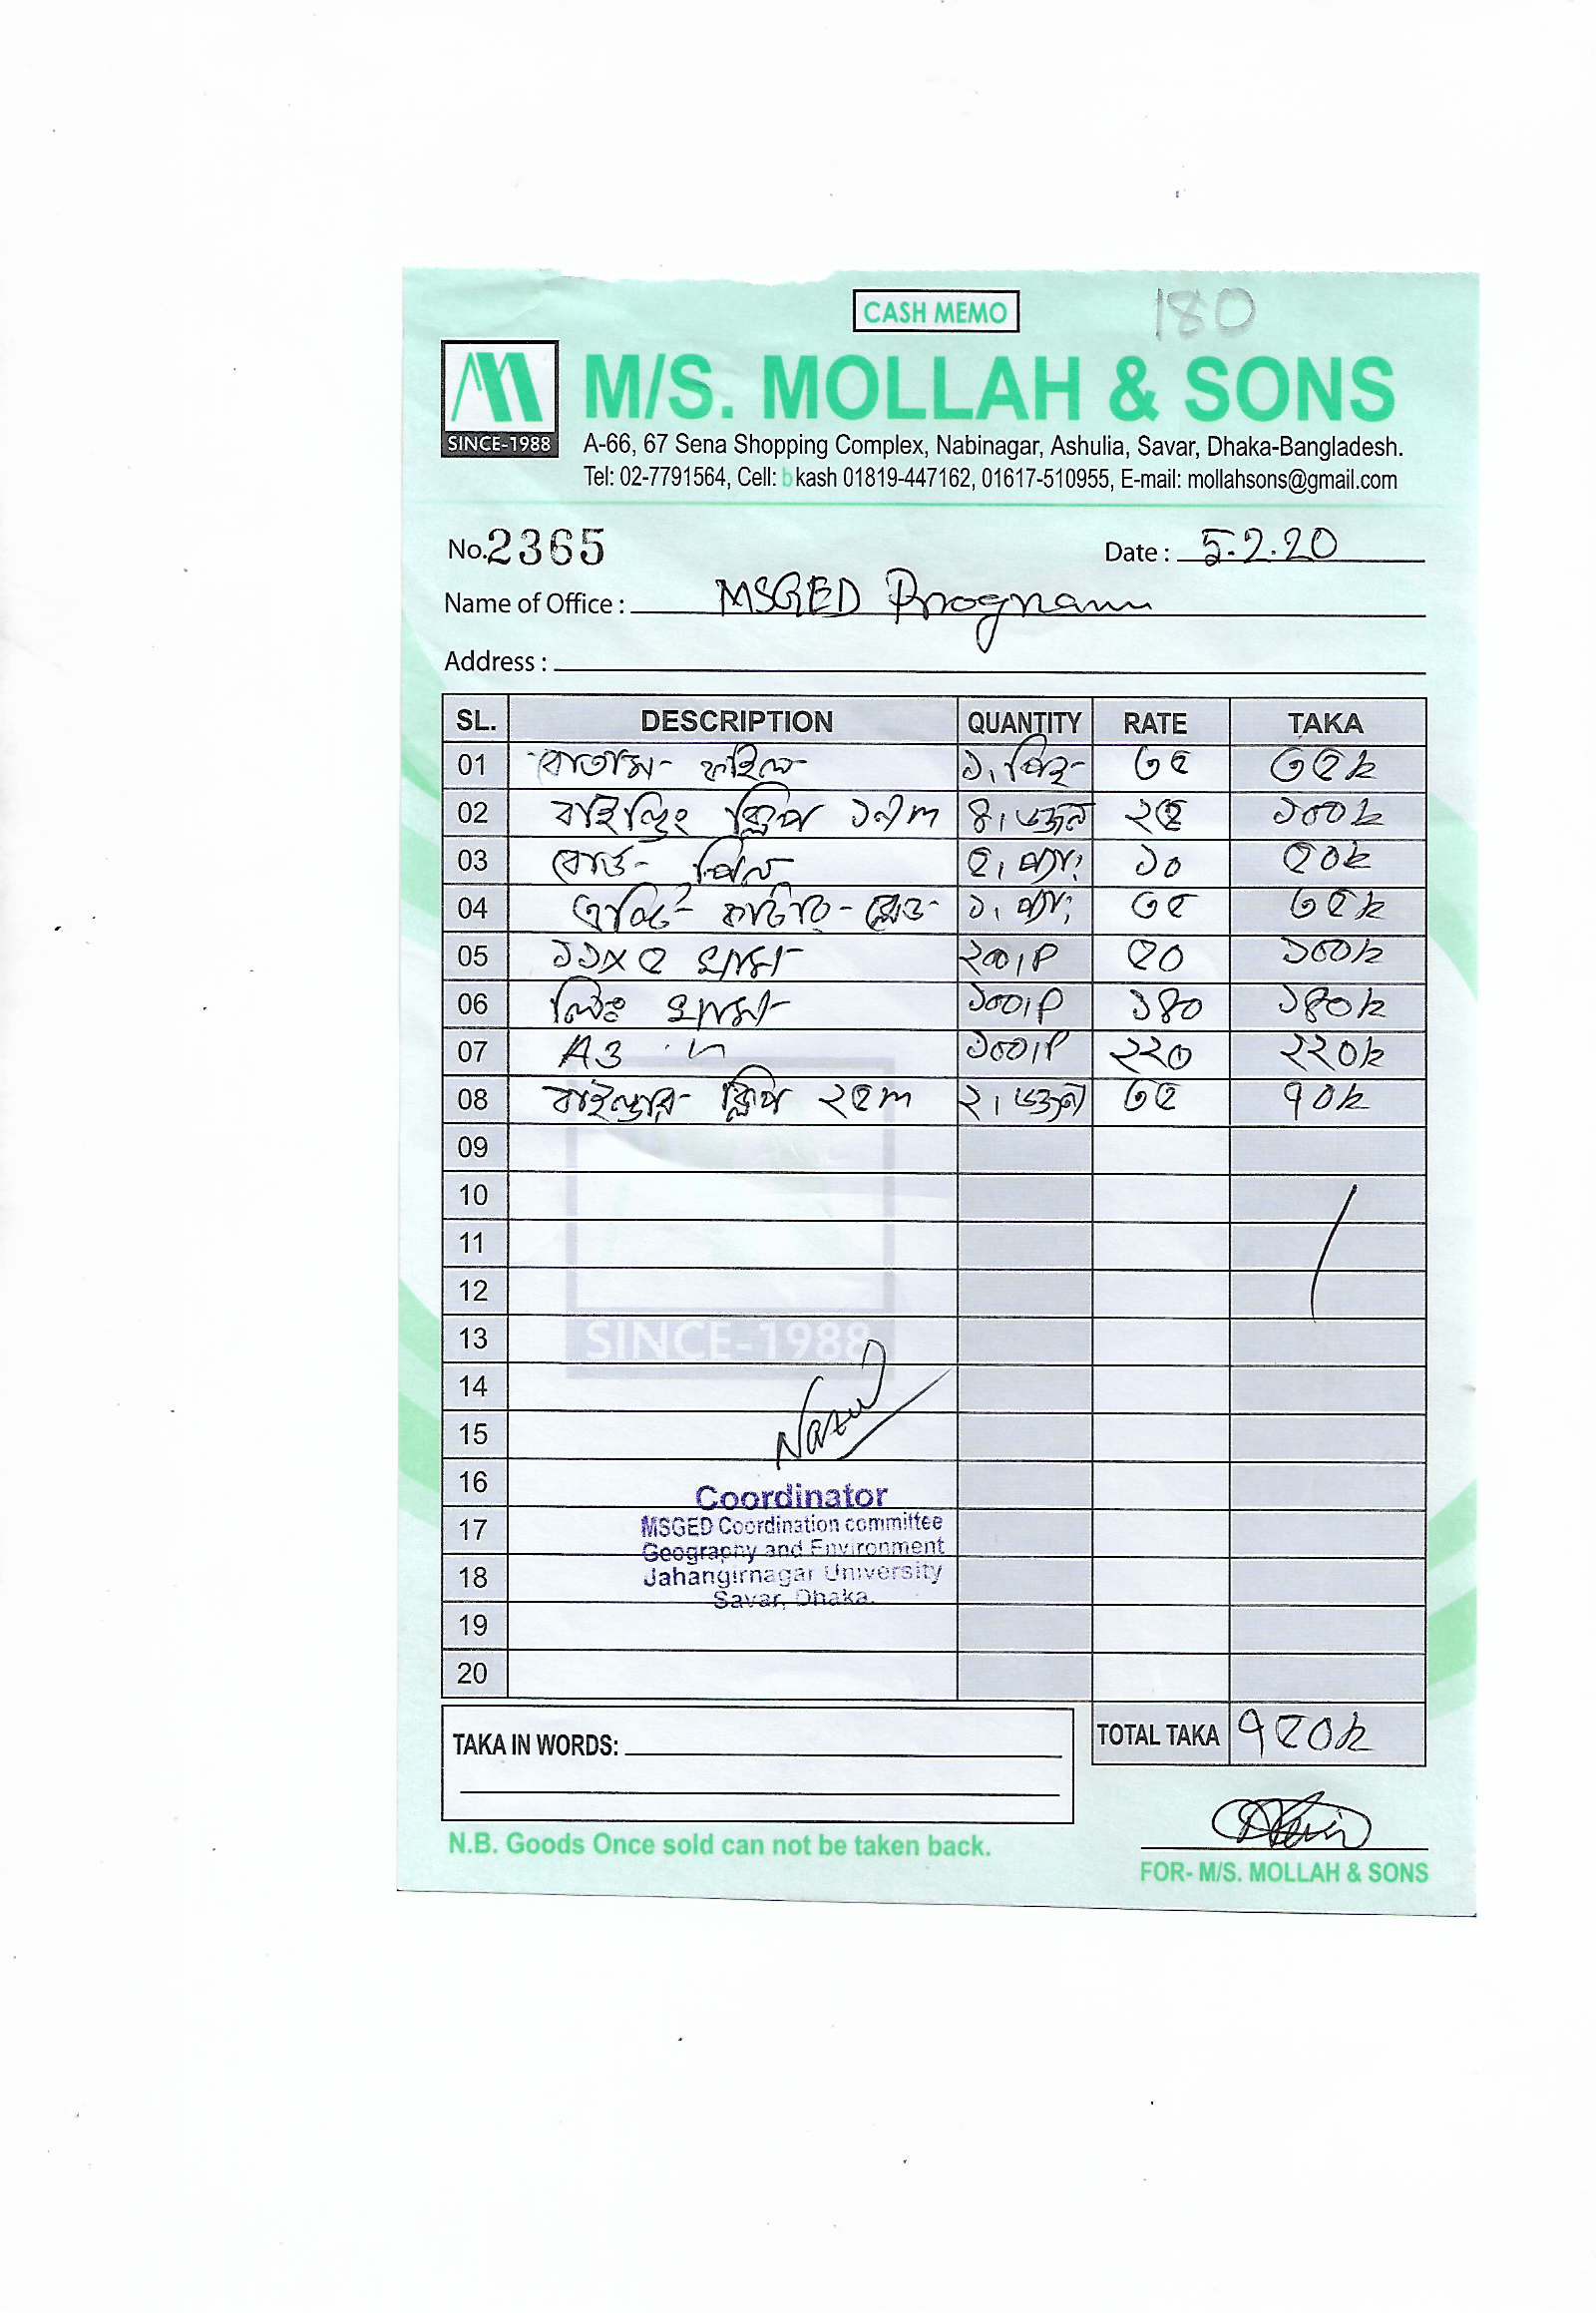 CASH MEMO
180
SINCE-1988
M/S. MOLLAH & SONS
A-66, 67 Sena Shopping Complex, Nabinagar, Ashulia, Savar, Dhaka-Bangladesh.
Tel: 02-7791564, Cell: bkash 01819-447162, 01617-510955, E-mail: mollahsons@gmail.com
No. 2365 Date : 5.2.20
Name of Office : MSGED Program
Address :
SL. DESCRIPTION QUANTITY RATE TAKA
01 বোতাম ফাইল ১, পিছ ৩৫ ৩৫
02 বাইন্ডিং ক্লিপ ১৯m ৪, ডজন ২৫ ১০০
03 বোর্ড পিন ৫, প্যাঃ ১০ ৫০
04 কাটার ব্লেড ১, প্যাঃ ৩৫ ৩৫
05 ১১x৫ খাম ২০০, P ৫০ ১০০
06 খাম ১০০, P ১৪০ ১৪০
07 A3 " ১০০, P ২২০ ২২০
08 বাইন্ডার ক্লিপ ২৫m ২, ডজন ৩৫ ৭০
09
10
11
12
13
SINCE-1988
14
15
16
Coordinator
17
MSGED Coordination committee
Geography and Environment
18
Jahangirnagar University
Savar, Dhaka.
19
20
TAKA IN WORDS: TOTAL TAKA ৭৫০
N.B. Goods Once sold can not be taken back.
FOR- M/S. MOLLAH & SONS